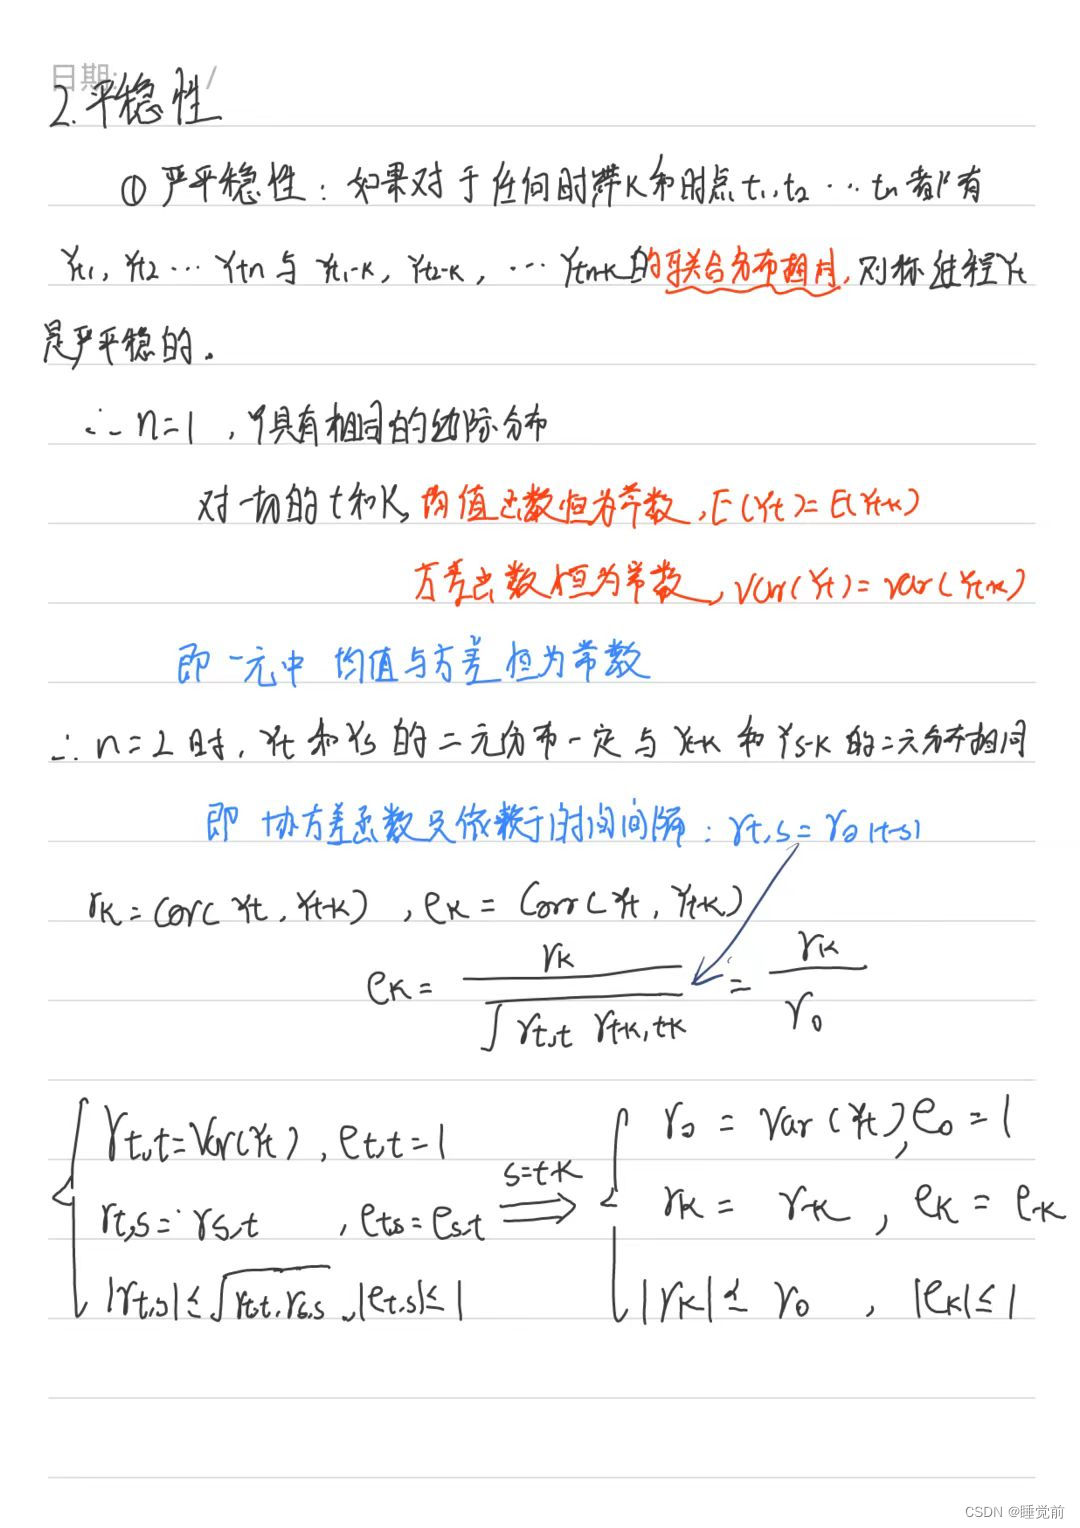 日期: /
2. 平稳性
① 严平稳性: 如果对于任何时滞K和时点t₁,t₂ … tₙ 都有
Yt1, Yt2 … Ytn 与 Yt1-K, Yt2-K, … Ytn-K的联合分布相同, 则称过程Yt
是严平稳的.
∴ n=1 , Y具有相同的边际分布
对一切的t和K, 均值函数恒为常数, E(Yt)=E(Yt-K)
方差函数恒为常数, Var(Yt)=Var(Yt-K)
即 一元中 均值与方差恒为常数
∴ n=2时, Yt 和 Ys 的二元分布一定与 Yt-K 和 Ys-K 的二元分布相同
即 协方差函数只依赖于时间间隔: γt,s = γ0,|t-s|
γK = Cov(Yt, Yt-K) , ρK = Corr(Yt, Yt-K)
ρK = γK / √(γt,t γt-K,t-K) = γK / γ0
γt,t=Var(Yt) , ρt,t=1
γt,s = γs,t , ρt,s = ρs,t
|γt,s| ≤ √(γt,t γs,s) , |ρt,s| ≤ 1
s=t-K
⇒
γ0 = Var(Yt), ρ0 = 1
γK = γ-K , ρK = ρ-K
|γK| ≤ γ0 , |ρK| ≤ 1
CSDN @睡觉前